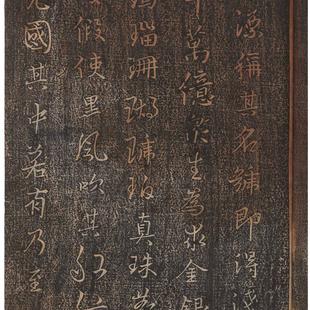 漂稱其名號即得淺
千萬億众生為求金銀
瑪瑙珊瑚琥珀真珠等
假使黑風吹其舡
國其中若有乃至